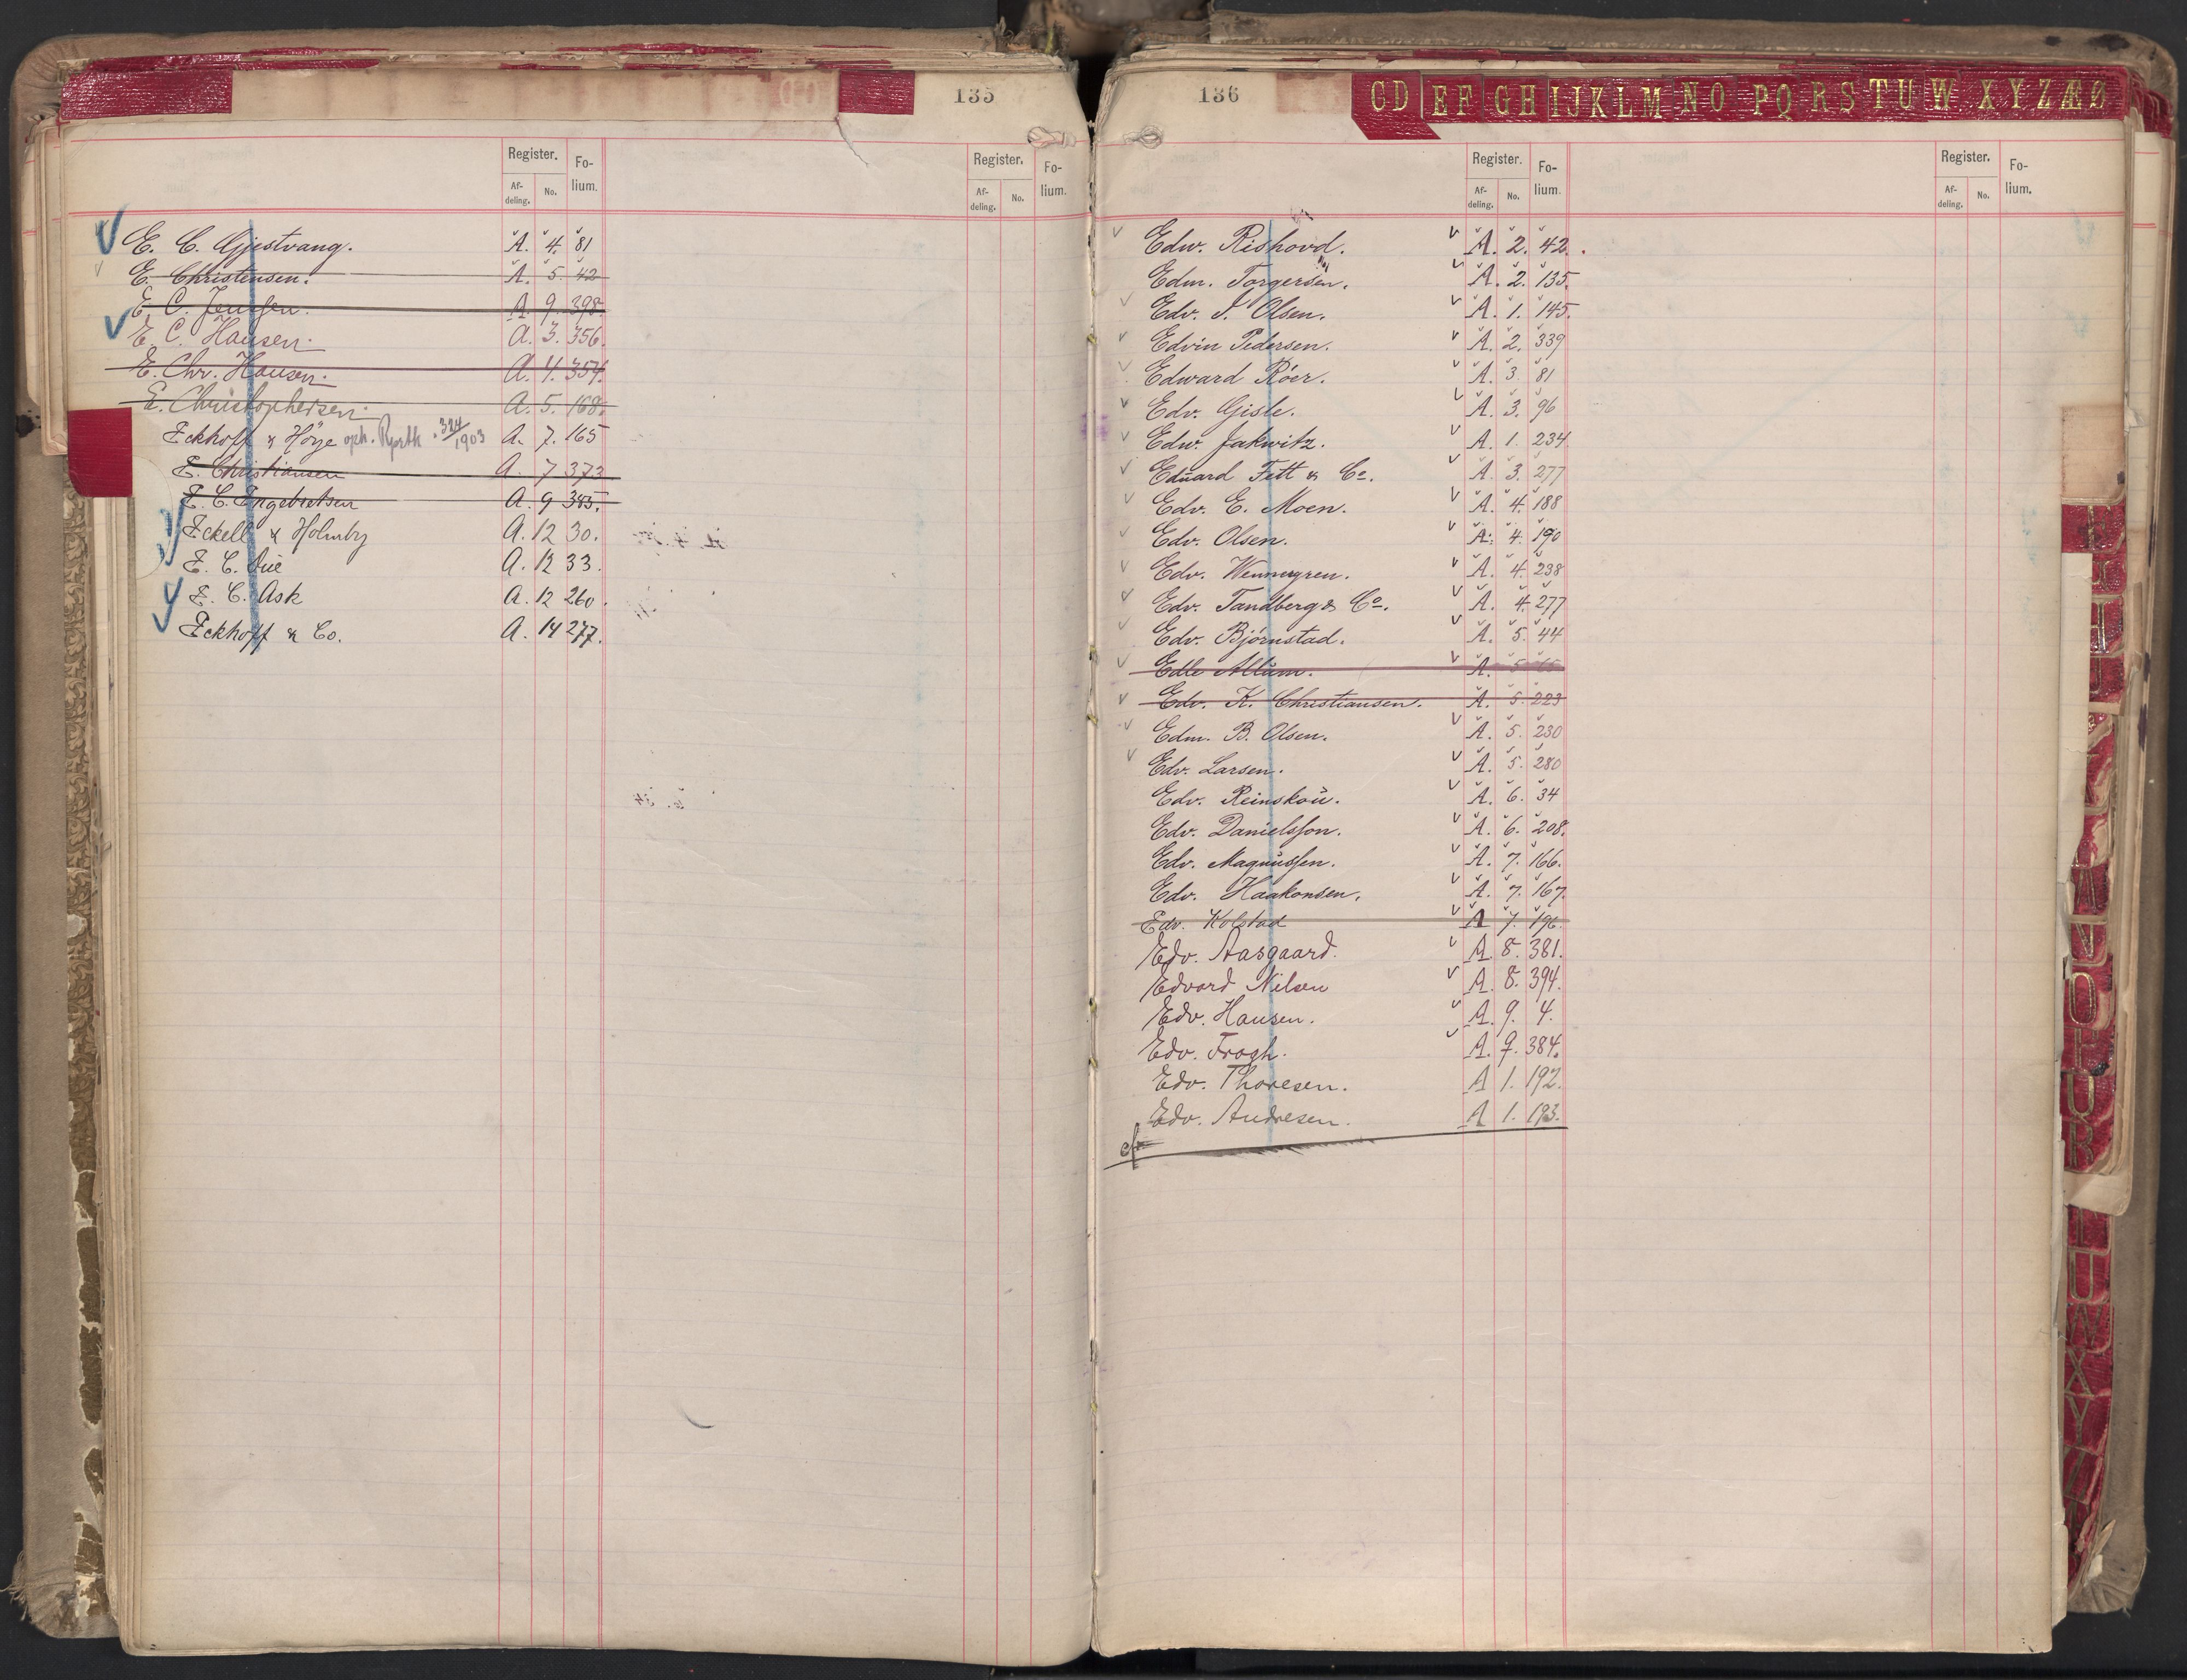 135
Register. Fo-
lium.
Af-
deling. No.
Register. Fo-
lium.
Af-
deling. No.
E. C. Gjestvang. A. 4. 81
E. Christensen. A. 5. 42
E. C. Jenssen. A. 9. 398.
E. C. Hansen. A. 3. 356.
E. Chr. Hansen. A. 4. 354.
E. Christophersen. A. 5. 168.
Eckhoff & Höye oph. 324/1903 A. 7. 165
E. Christiansen A. 7 373
E. C. Engebretsen A. 9 345.
Eckell & Holmby A. 12 30.
E. C. A. 12 33.
E. C. Ask A. 12 260.
Eckhoff & Co. A. 14 277.
136
CD EF GH IJ KL M NO PQ RS TU W X Y Z Æ Ø
Register. Fo-
lium.
Af-
deling. No.
Register. Fo-
lium.
Af-
deling. No.
Edw. Rishovd. A. 2. 42.
Edm. Torgersen. A. 2. 135.
Edv. J. Olsen. A. 1. 145.
Edvin Pedersen. A. 2. 339
Edward Röer. A. 3. 81
Edv. Gisle. A. 3. 96
Edw. Jakwitz. A. 1. 234
Eduard Fett & Co. A. 3. 277
Edv. E. Moen. A. 4. 188
Edv. Olsen. A. 4. 190
Edv. Wennergren. A. 4. 238
Edv. Tandberg & Co. A. 4. 277
Edv. Björnstad. A. 5. 44
Edle Allum. A. 5
Edv. K. Christiansen. A. 5. 223
Edm. B. Olsen. A. 5. 230
Edv. Larsen. A. 5. 280
Edv. Reinskou. A. 6. 34
Edv. Danielsson. A. 6. 208.
Edv. Magnussen. A. 7. 166.
Edv. Haakonsen. A. 7. 167.
Edv. Kolstad A 7. 196.
Edv. Aasgaard. A. 8. 381.
Edvard Nilsen A. 8. 394.
Edv. Hansen. A. 9. 4.
Edv. Frogh. A. 9. 384.
Edv. Thoresen. A 1. 192.
Edv. Andresen. A 1. 193.